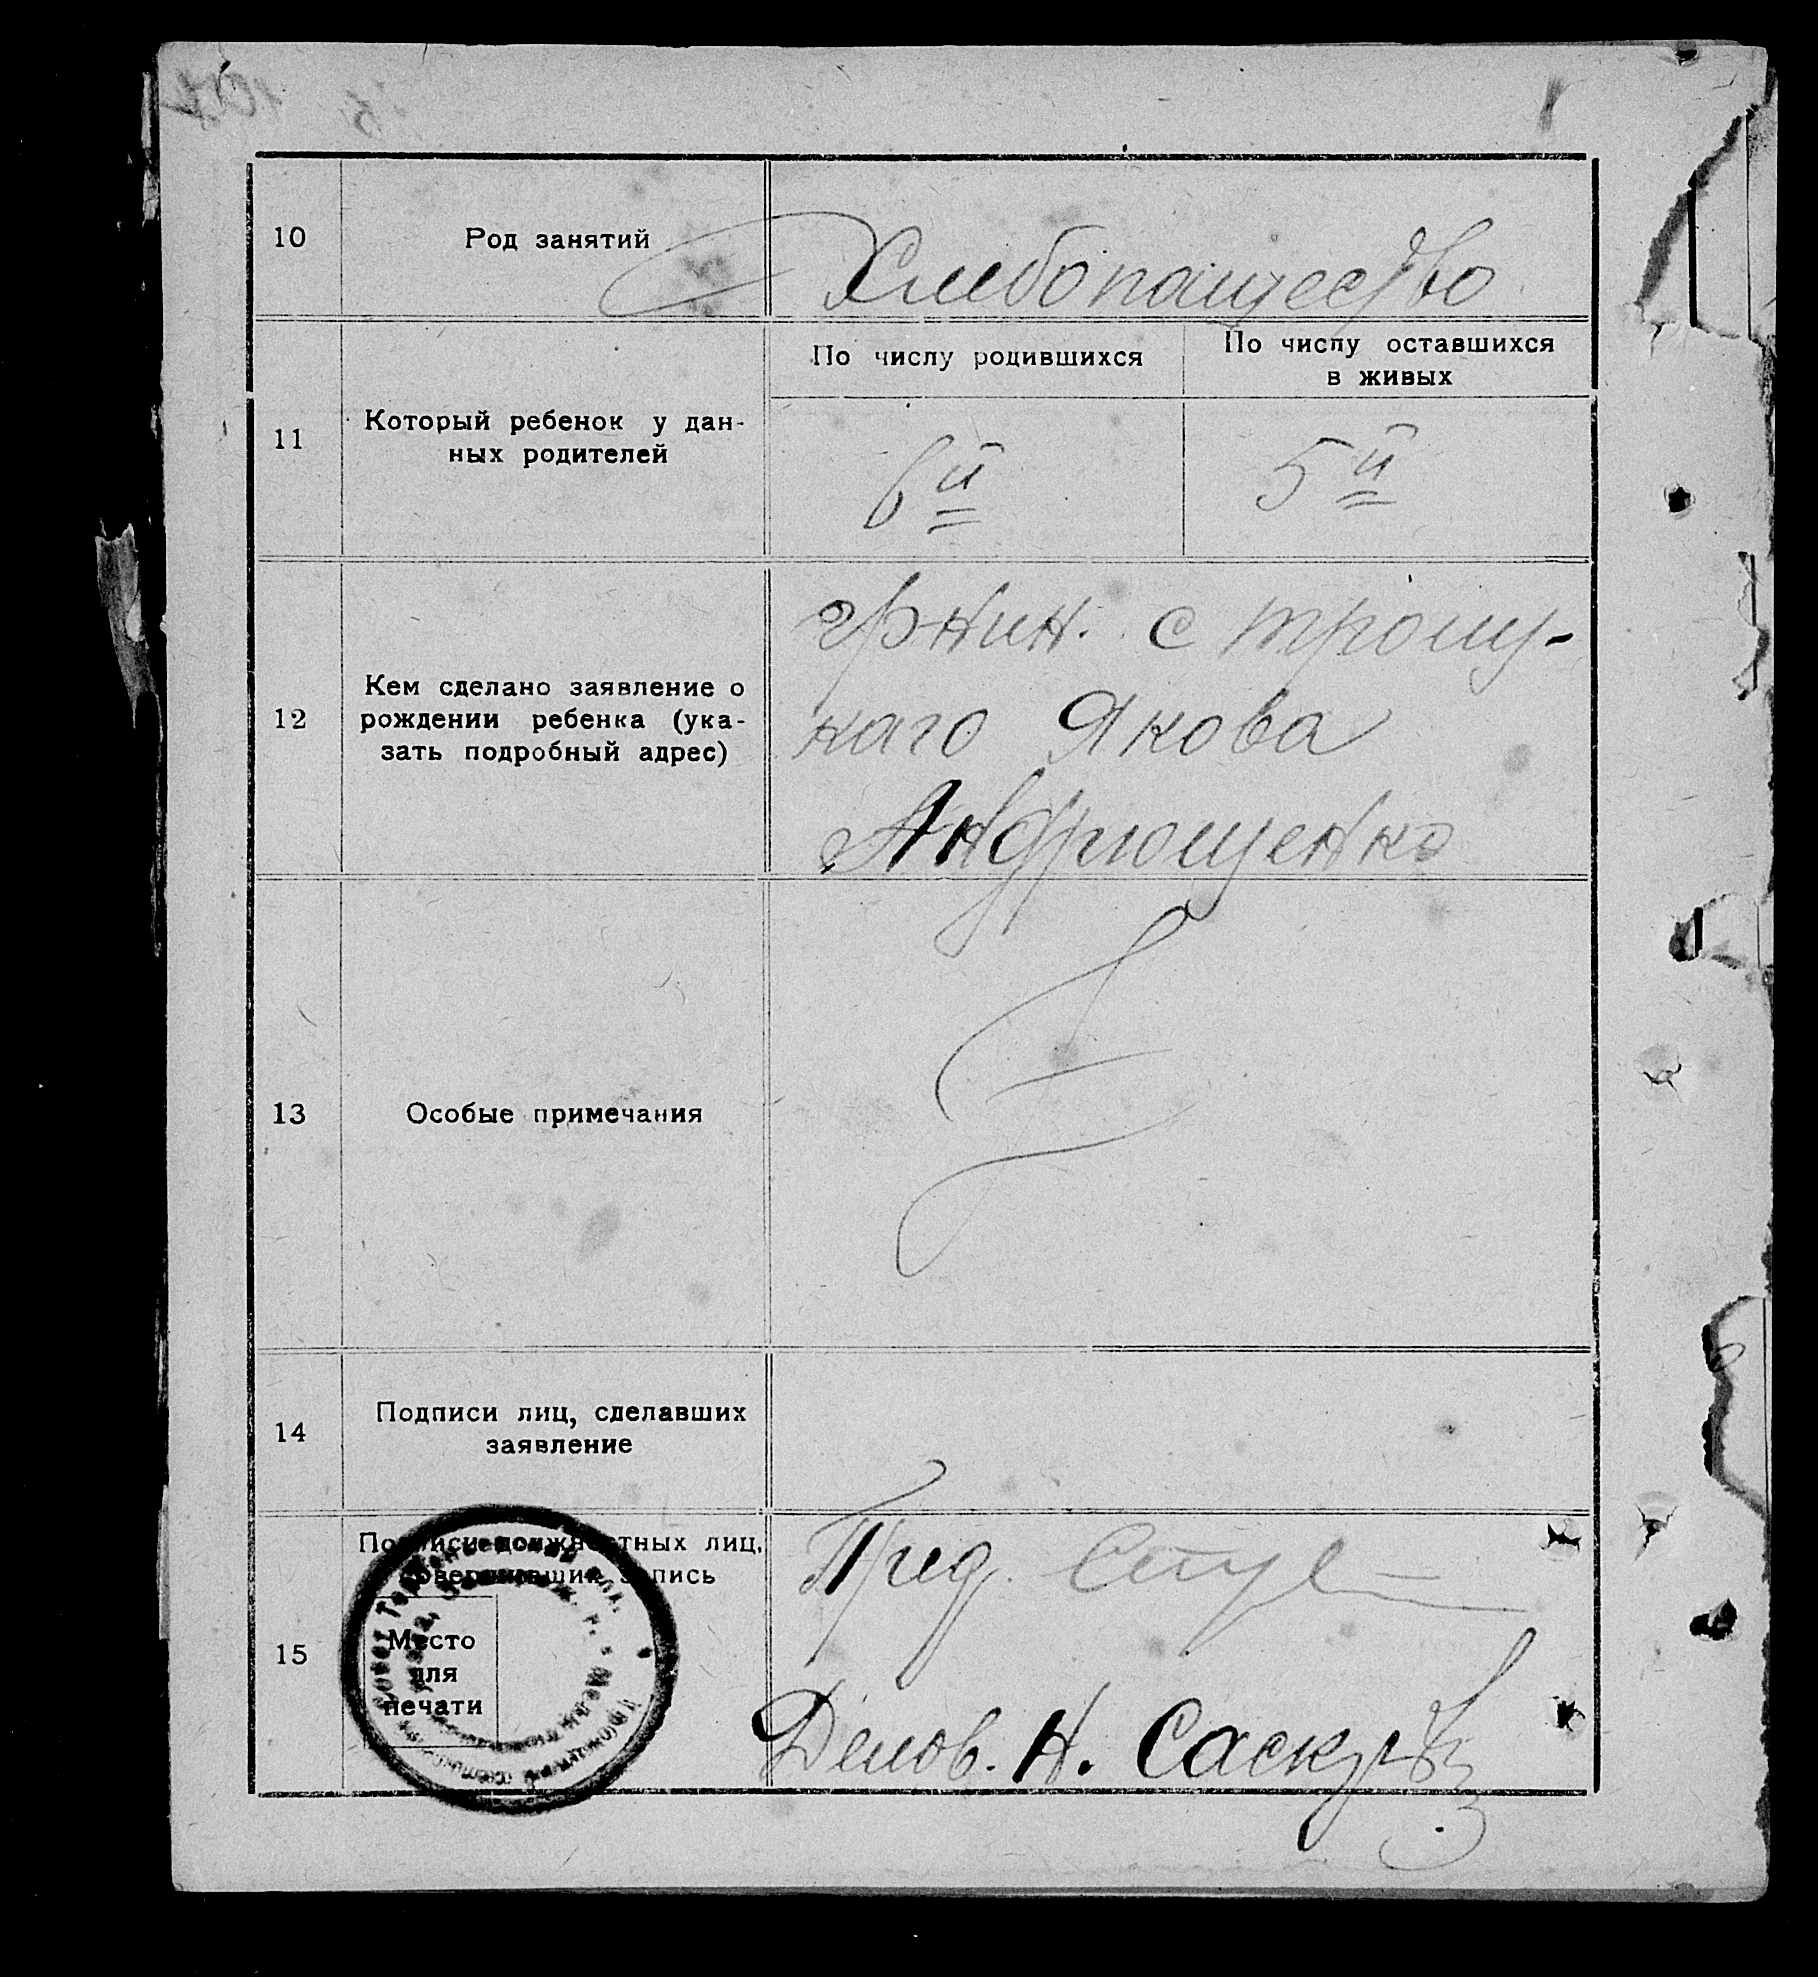 10
Род занятий
Хлебопащество
11
Который ребенок у дан-
ных родителей
По числу родившихся
По числу оставшихся
в живых
6й
5й
12
Кем сделано заявление о
рождении ребенка (ука-
зать подробный адрес)
гржин. с трому-
каго Якова
Андрющенко
13
Особые примечания
14
Подписи лиц, сделавших
заявление
15
Подписи должностных лиц,
совершивших запись
Место
для
печати
Пред.
Делов. Н.